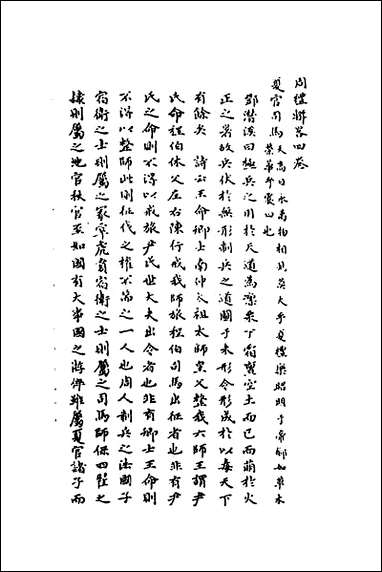 周禮輯畧四卷
夏官司馬天高日永萬物相見莫大乎夏禮樂昭明于帝郁如草木
榮華乎夏四也
鄧潛溪曰極兵之用於天道爲潔泉下 寶室土而已而萌於火
正之署故兵伏於無形制兵之道國于未形令形成於以毒天下
有餘矣 詩云王命卿士南仲大祖太師皇父整我六師王謂尹
氏命程伯休父左右陳行戒我師旅程伯司馬出征者也非有尹
氏之命則不得以戒旅尹氏世大夫出令者也非有卿士王命則
不得以整師此則征代之權不萬之一人也周人制兵之法國子
宿衛之士則屬之冢宰虎賁宿衛之士則屬之司馬師保四翟之
隸則屬之地官秋官至如國有大事國之游倅雖屬夏官諸子而